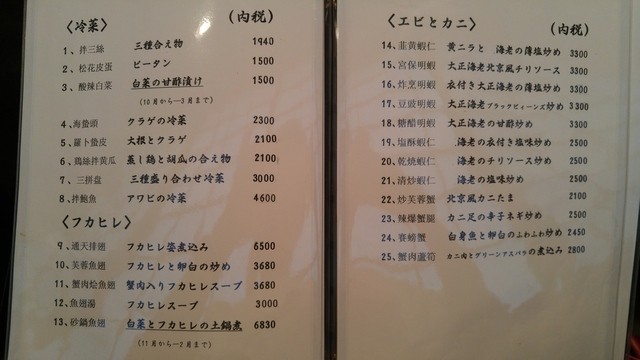 〈冷菜〉 (内税)
1、拌三絲 三種合え物 1940
2、松花皮蛋 ピータン 1500
3、酸辣白菜 白菜の甘酢漬け 1500
(10月から―3月まで)
4、海蜇頭 クラゲの冷菜 2300
5、羅卜蜇皮 大根とクラゲ 2100
6、鶏絲拌黄瓜 蒸し鶏と胡瓜の合え物 2100
7、三拼盘 三種盛り合わせ冷菜 3000
8、拌鮑魚 アワビの冷菜 4600
〈フカヒレ〉
9、通天排翅 フカヒレ姿煮込み 6500
10、芙蓉魚翅 フカヒレと卵白の炒め 3680
11、蟹肉烩魚翅 蟹肉入りフカヒレスープ 3680
12、魚翅湯 フカヒレスープ 3000
13、砂鍋魚翅 白菜とフカヒレの土鍋煮 6830
(11月から―2月まで)
〈エビとカニ〉 (内税)
14、韮黄蝦仁 黄ニラと 海老の薄塩炒め 3300
15、宮保明蝦 大正海老北京風チリソース 3300
16、炸烹明蝦 衣付き大正海老の薄塩炒め 3300
17、豆豉明蝦 大正海老ブラックビィーンズ炒め 3300
18、糖醋明蝦 大正海老の甘酢炒め 3300
19、塩酥蝦仁 海老の衣付き塩味炒め 2500
20、乾焼蝦仁 海老のチリソース炒め 2500
21、清炒蝦仁 海老の塩味炒め 2500
22、炒芙蓉蟹 北京風カニたま 2100
23、辣爆蟹腿 カニ足の辛子ネギ炒め 2500
24、賽螃蟹 白身魚と卵白のふわふわ炒め 2450
25、蟹肉蘆筍 カニ肉とグリーンアスパラの煮込み 2800